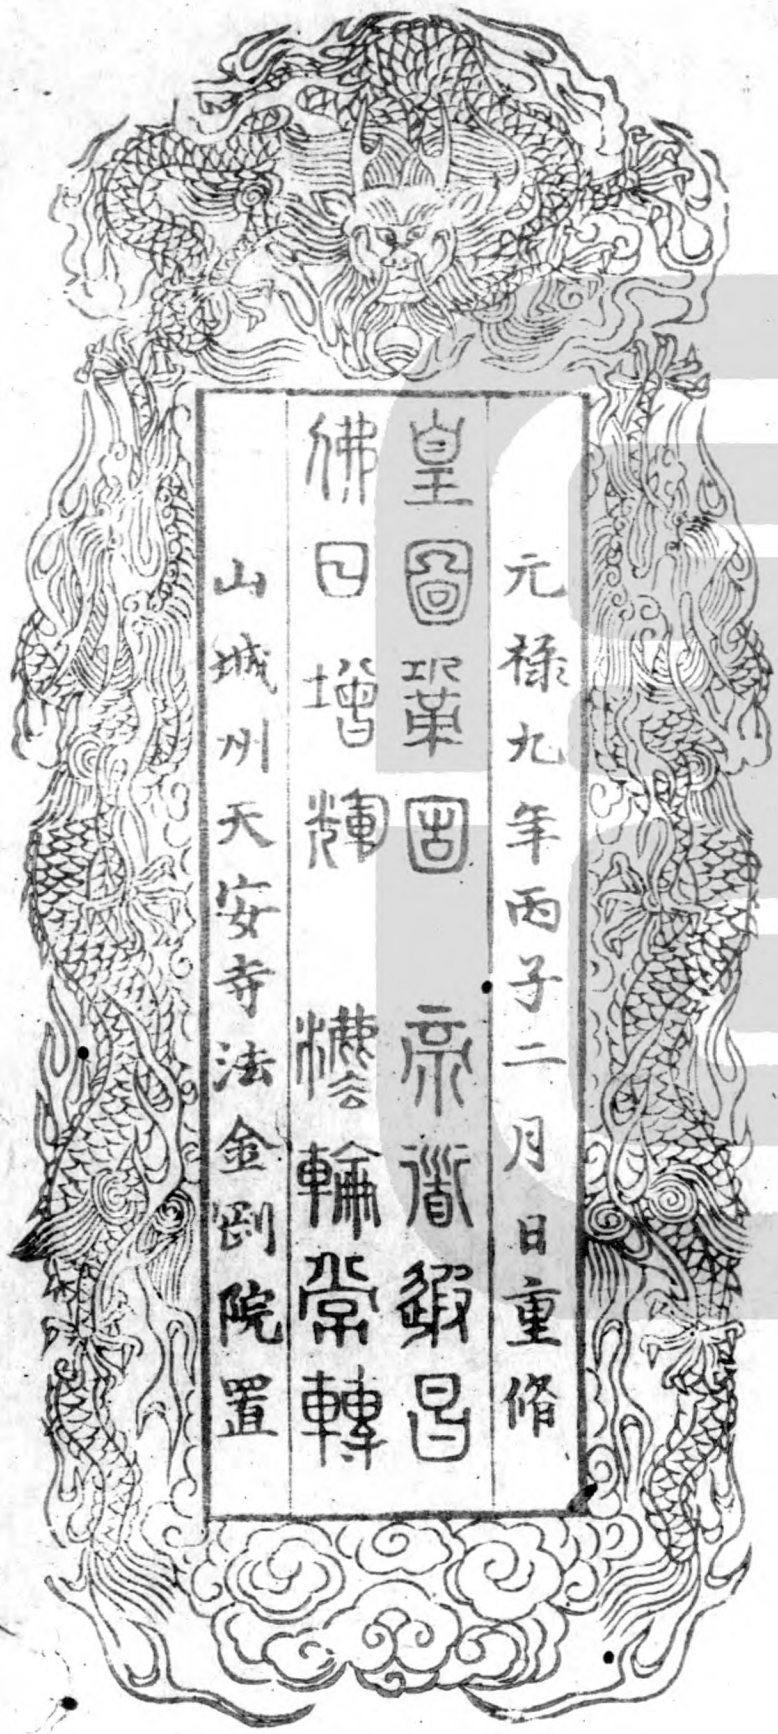 元禄九年丙子二月 日重脩
皇圖鞏固 帝道遐昌
佛日增輝 法輪常轉
山城州天安寺法金剛院置